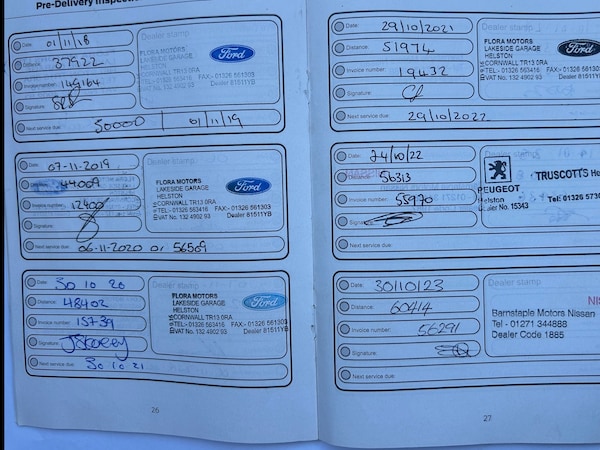 Pre-Delivery Inspect
Date: 01/11/18
Distance: 37922
Invoice number: 149164
Signature:
Next service due: 50000 | 01/11/19
Dealer stamp
FLORA MOTORS
LAKESIDE GARAGE
HELSTON
CORNWALL TR13 0RA
TEL:- 01326 563416 FAX:- 01326 561303
VAT No. 132 4902 93 Dealer 81511YB
Ford
Date: 07-11-2019
Distance: 44009
Invoice number: 12400
Signature:
Next service due: 06-11-2020 or 56509
Dealer stamp
FLORA MOTORS
LAKESIDE GARAGE
HELSTON
CORNWALL TR13 0RA
TEL:- 01326 563416 FAX:- 01326 561303
VAT No. 132 4902 93 Dealer 81511YB
Ford
Date: 30 10 20
Distance: 48402
Invoice number: 15739
Signature:
Next service due: 30 10 21
Dealer stamp
FLORA MOTORS
LAKESIDE GARAGE
HELSTON
CORNWALL TR13 0RA
TEL:- 01326 563416 FAX:- 01326 561303
VAT No. 132 4902 93 Dealer 81511YB
Ford
26
Date: 29/10/2021
Distance: 51974
Invoice number: 19432
Signature:
Next service due: 29/10/2022
FLORA MOTORS
LAKESIDE GARAGE
HELSTON
CORNWALL TR13 0RA
TEL:- 01326 563416 FAX:- 01326 561303
VAT No. 132 4902 93 Dealer 81511YB
Ford
Date: 24/10/22
Distance: 56313
Invoice number: 55970
Signature:
Next service due:
PEUGEOT
Helston
Dealer No. 15343
TRUSCOTTS He
Tel: 01326 5730
Date: 30/10/23
Distance: 60414
Invoice number: 56291
Signature:
Next service due:
Dealer stamp
NIS
Barnstaple Motors Nissan
Tel - 01271 344888
Dealer Code 1885
27